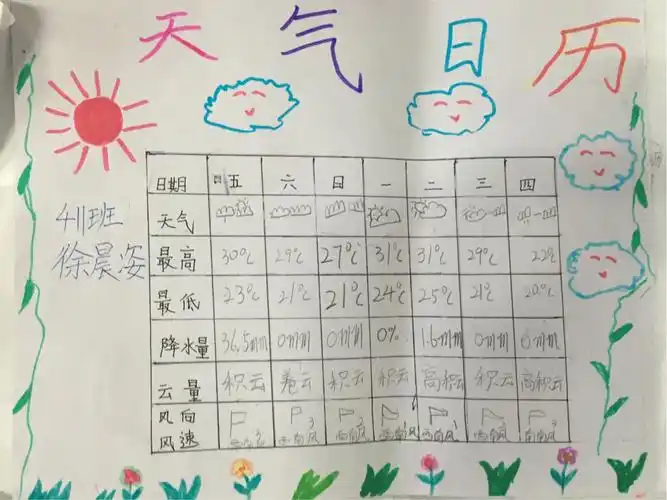 天气日历
411班
徐晨姿
日期 五 六 日 一 二 三 四
天气
最高 30℃ 29℃ 27℃ 31℃ 31℃ 29℃ 22℃
最低 23℃ 21℃ 21℃ 24℃ 25℃ 21℃ 20℃
降水量 36.5mm 0mm 0mm 0% 1.6mm 0mm 0mm
云量 积云 卷云 积云 积云 高积云 积云 高积云
风向
风速 西南风 西南风 西南风 西南风